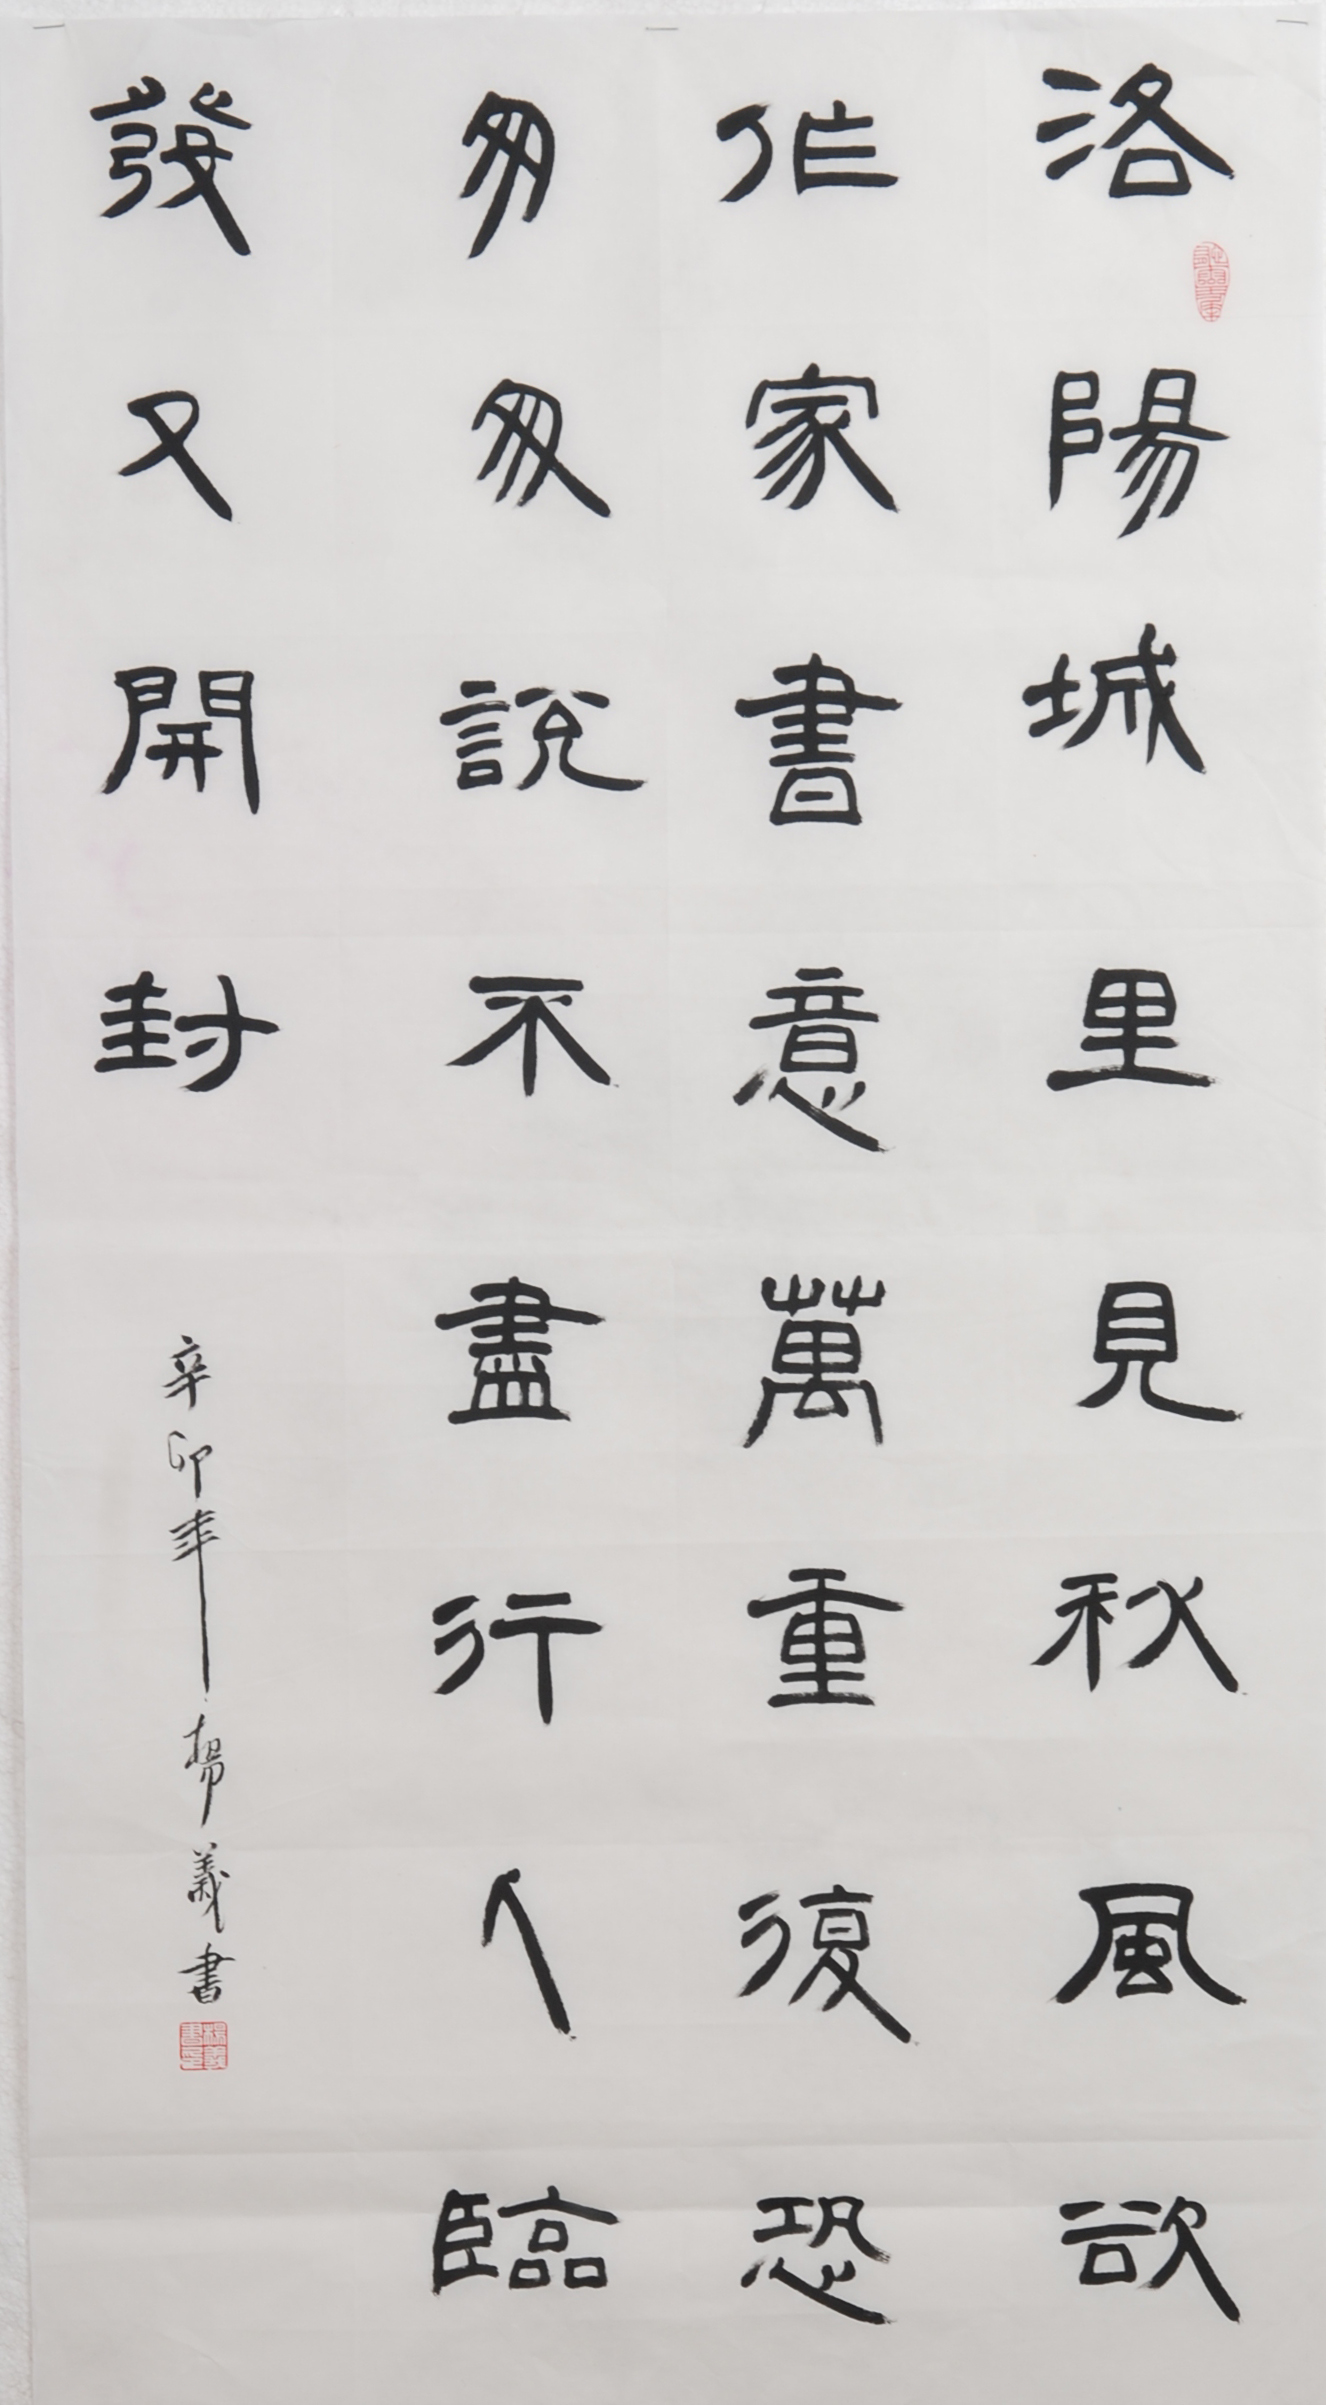 洛陽城里見秋風欲
作家書意萬重復恐
匆匆說不盡行人臨
發又開封
辛卯年楊義書